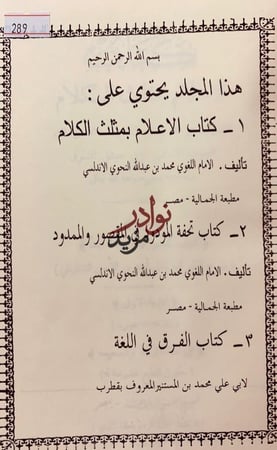 289
بسم الله الرحمن الرحيم
هذا المجلد يحتوي على :
١ ـ كتاب الاعلام بمثلث الكلام
تأليف . الامام اللغوي محمد بن عبدالله النحوي الاندلسي
مطبعة الجمالية - مصر
نوادر
مزيد
٢ـ كتاب تحفة المودود في المقصور والممدود
تأليف . الامام اللغوي محمد بن عبدالله النحوي الاندلسي
مطبعة الجمالية - مصر
٣ ـ كتاب الفرق في اللغة
لابي علي محمد بن المستنير المعروف بقطرب